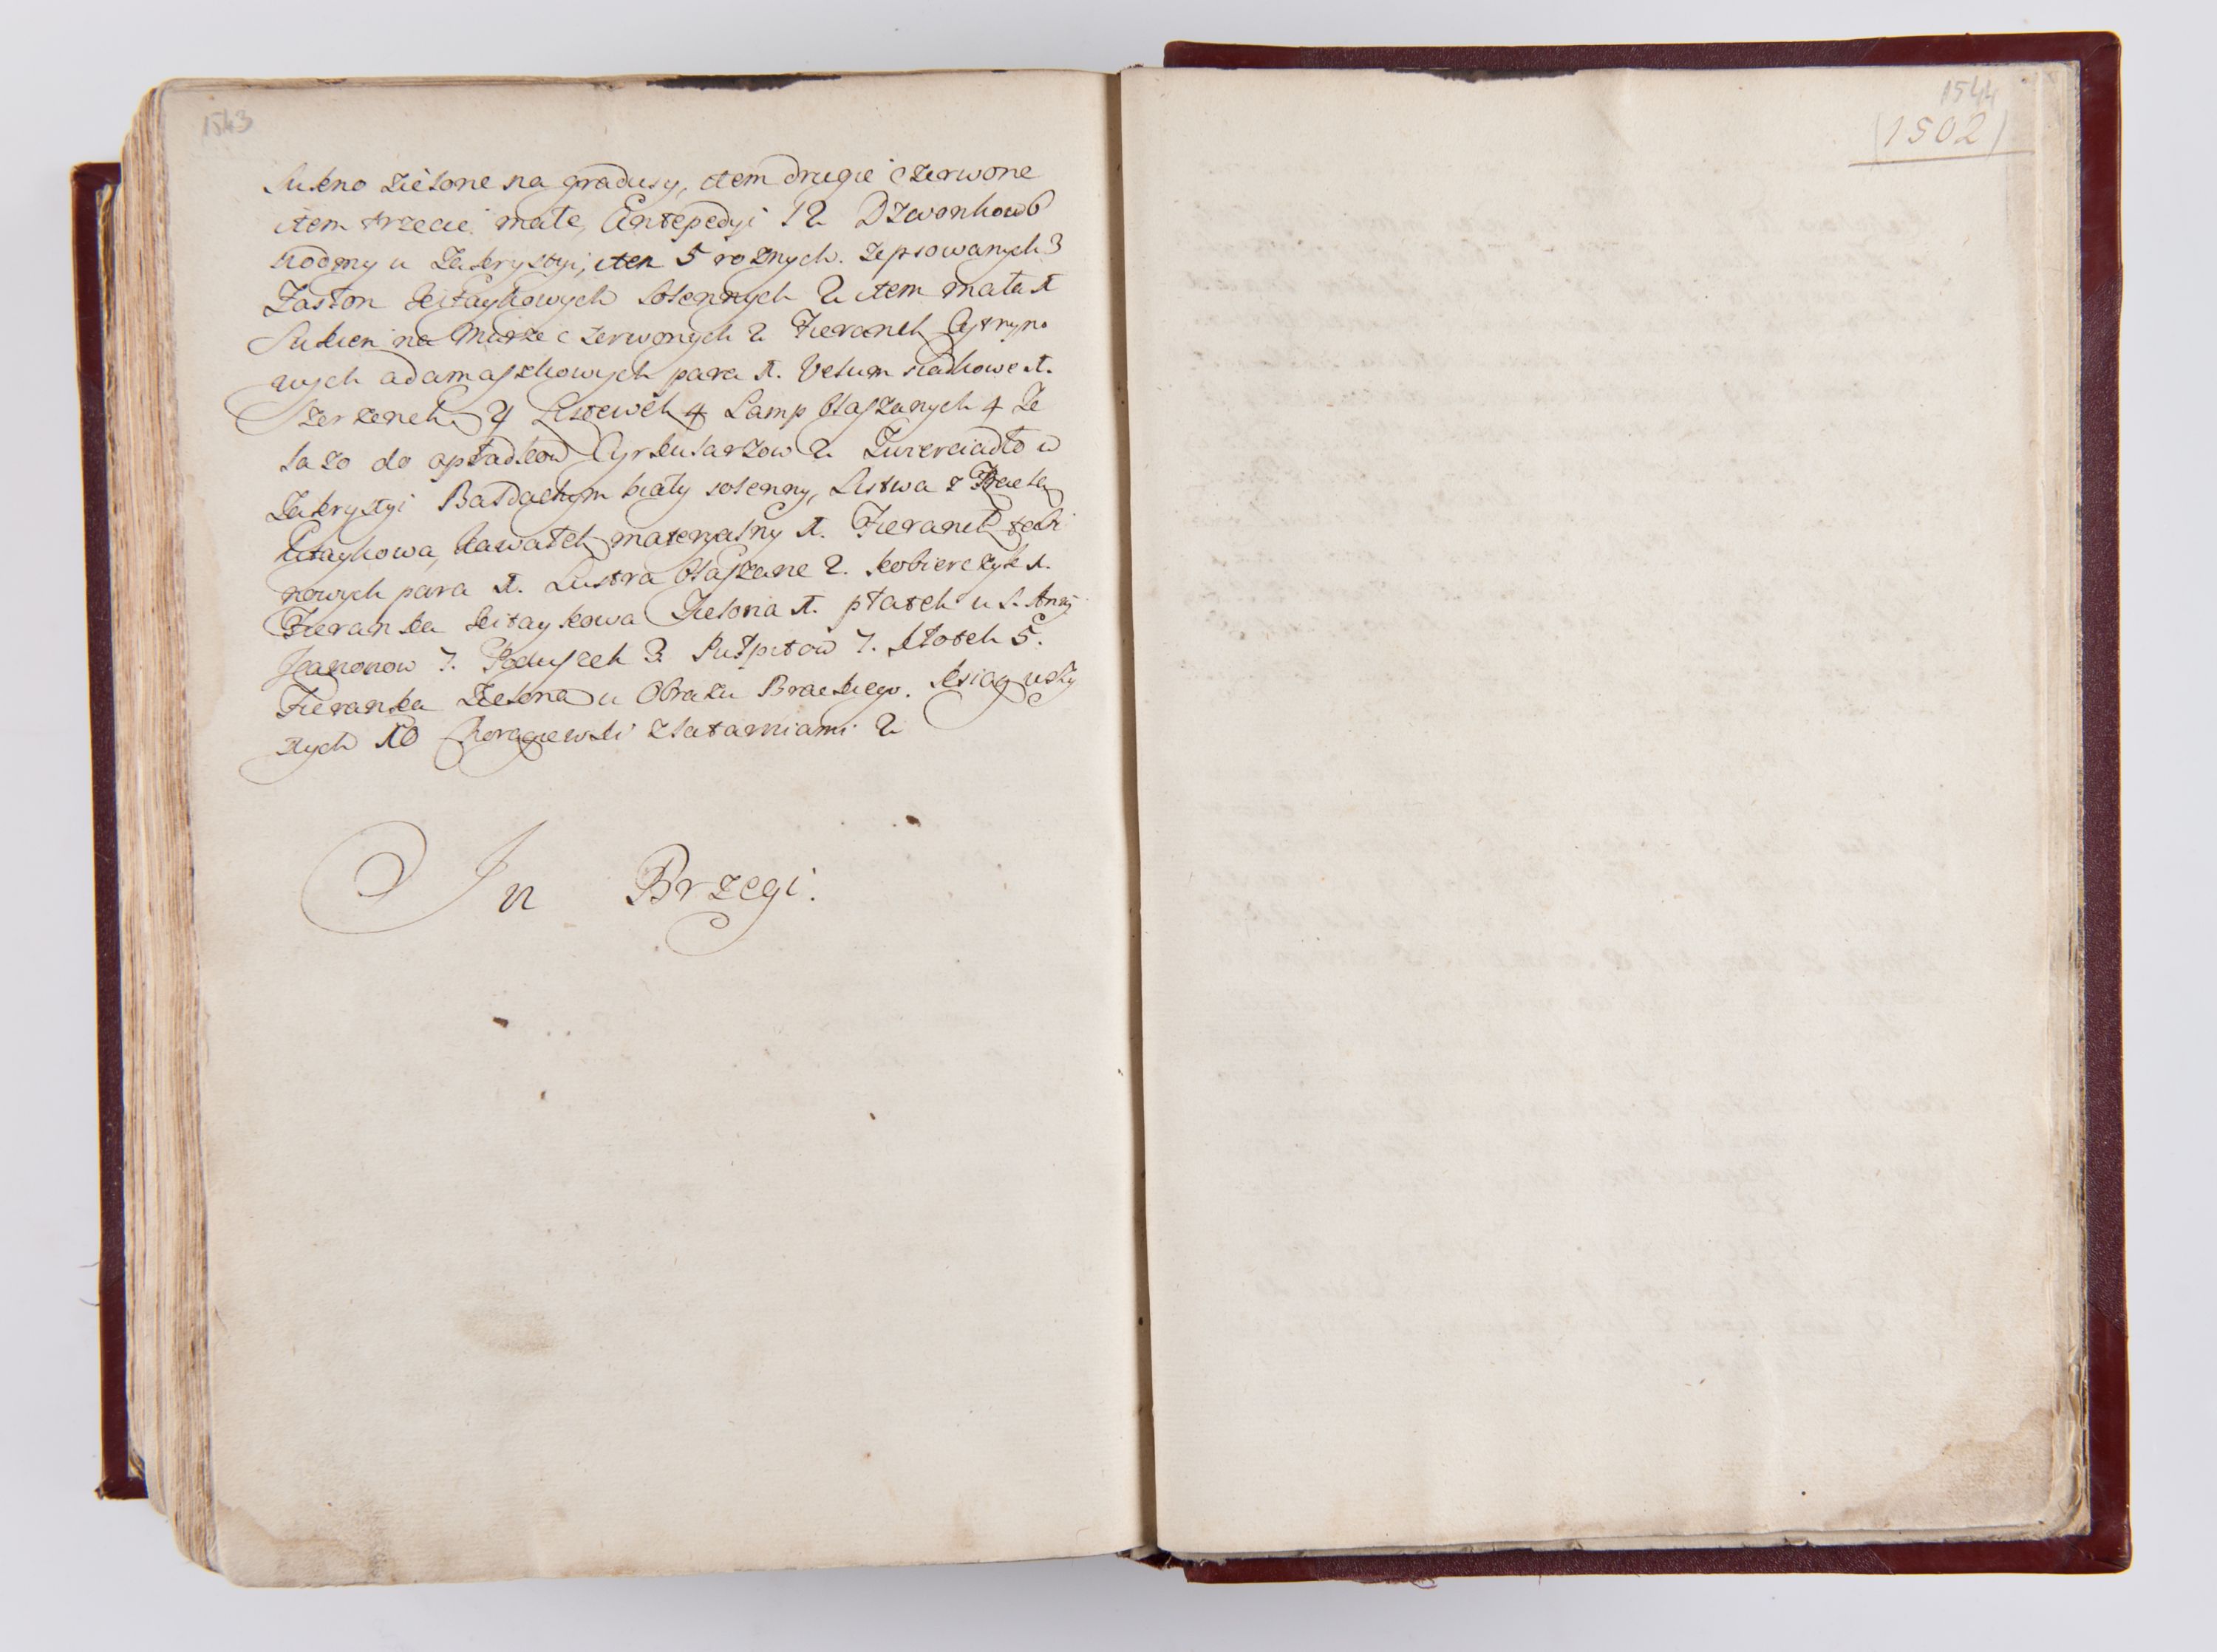 1543
Sukno zielone na gradusy, item drugie czerwone
item trzecie małe, Antepedyi 12 Dzwonkow 6
siodmy u Zakrystyi, item 5 roznych. Zepsowanych 3
Zasłon kitaykowych solennych 2 item mała 1
Sukien na Msze czerwonych 2 Fieranek Cytryno
wych adamaszkowych para 1. Velum siadkowe 1.
Szerzenek 4 Listewek 4 Lamp blaszanych 4 Że
lazo do opładkow Cyrkularzow 2 Zwierciadło w
Zakrystyi Baldachym biały solenny, Listwa z
Kitaykowa, kawałek materyalny 1. Fieranek tabi
nowych para 1. Lustra blaszane 2. kobierczyk 1.
Fieranka kitaykowa Zielona 1. płatek u S. Anny
Kanonow 7. Poduszek 3. Pulpitow 7. Stołek 5.
Fieranka Zielona u Obrazu Brackiego. ksiąg
stych 10 Choragiewki z latarniami 2
In Brzegi.
1544
(1502)